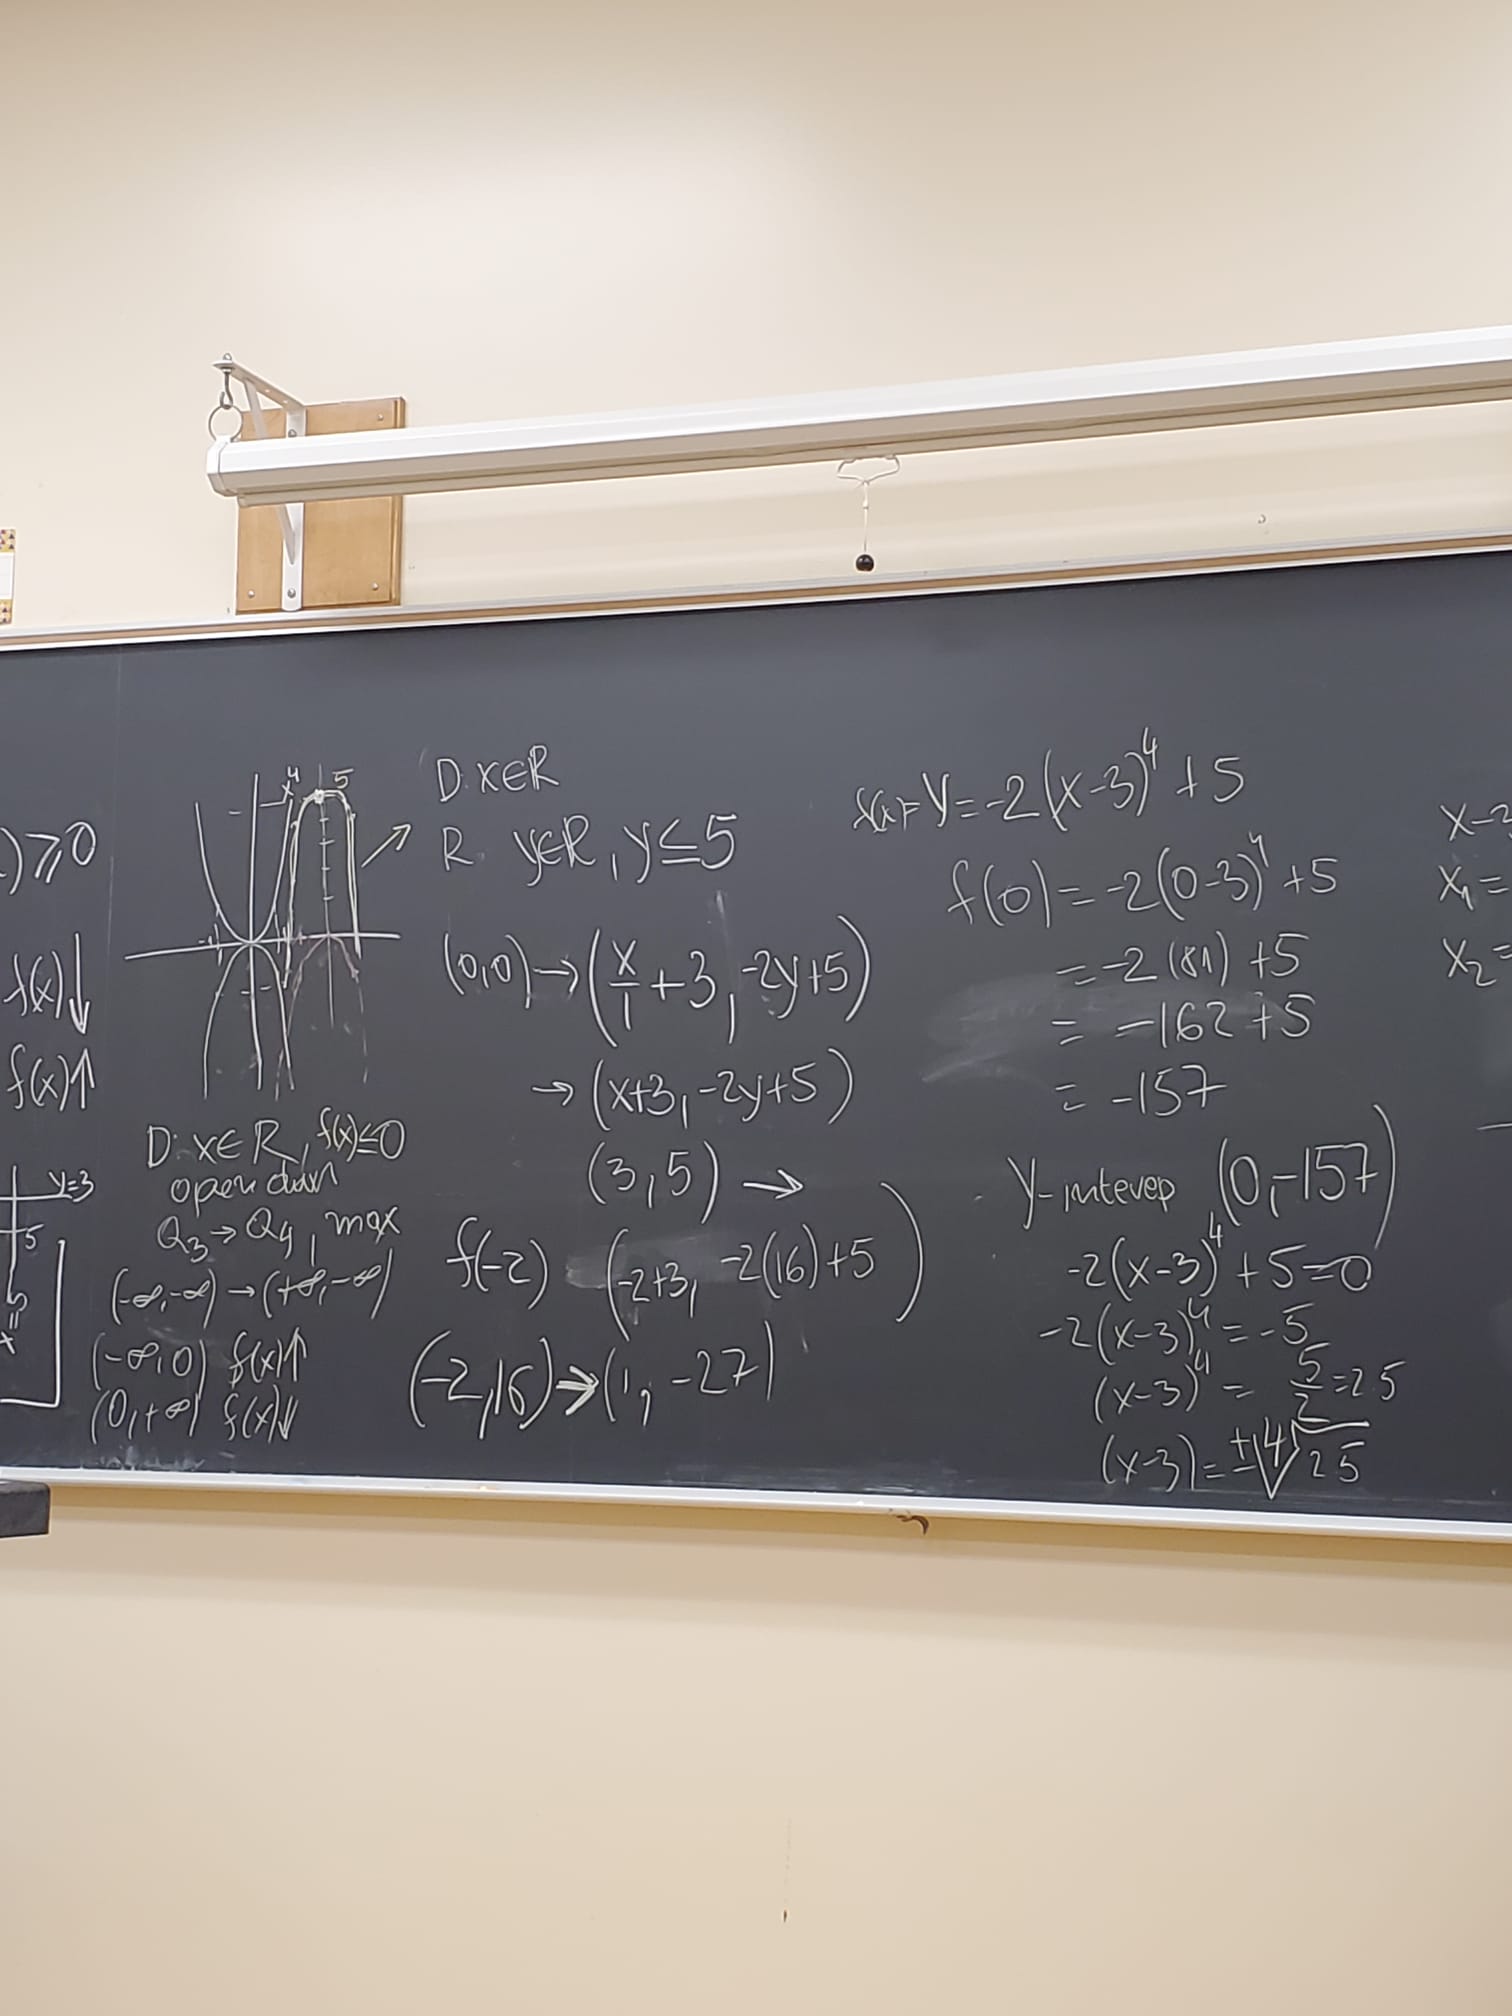 ) ≥ 0
f(x)↓
f(x)↑
y=3
5
x⁴ 5
D: x∈R, f(x)≤0
open down
Q₃→Q₄, max
(-∞,-∞)→(+∞,-∞)
(-∞,0) f(x)↑
(0,+∞) f(x)↓
D: x∈R
R: y∈R, y≤5
(0,0)→(x/1+3, -2y+5)
→(x+3, -2y+5)
(3,5)→
f(-2) (-2+3, -2(16)+5)
(-2,16)→(1,-27)
f(x)=y=-2(x-3)⁴+5
f(0)=-2(0-3)⁴+5
=-2(81)+5
= -162+5
= -157
y-intercep (0,-157)
-2(x-3)⁴+5=0
-2(x-3)⁴=-5
(x-3)⁴= 5/2=2.5
(x-3)=±⁴√2.5
x-3
x₁=
x₂=